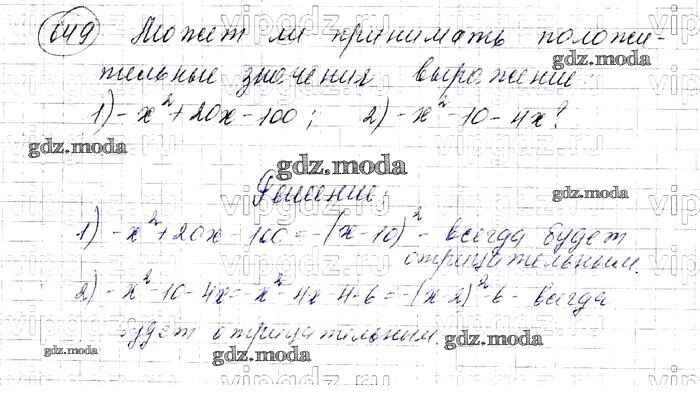 649 Может ли принимать положи-
тельные значения выражение:
1) -x²+20x-100; 2) -x²-10-4x?
Решение
1) -x²+20x-100=-(x-10)² - всегда будет
отрицательным.
2) -x²-10-4x=-x²-4x-4-6=-(x-2)²-6- всегда
будет отрицательным.
gdz.moda
gdz.moda
gdz.moda
gdz.moda
gdz.moda
gdz.moda
gdz.moda
vipgdz.ru